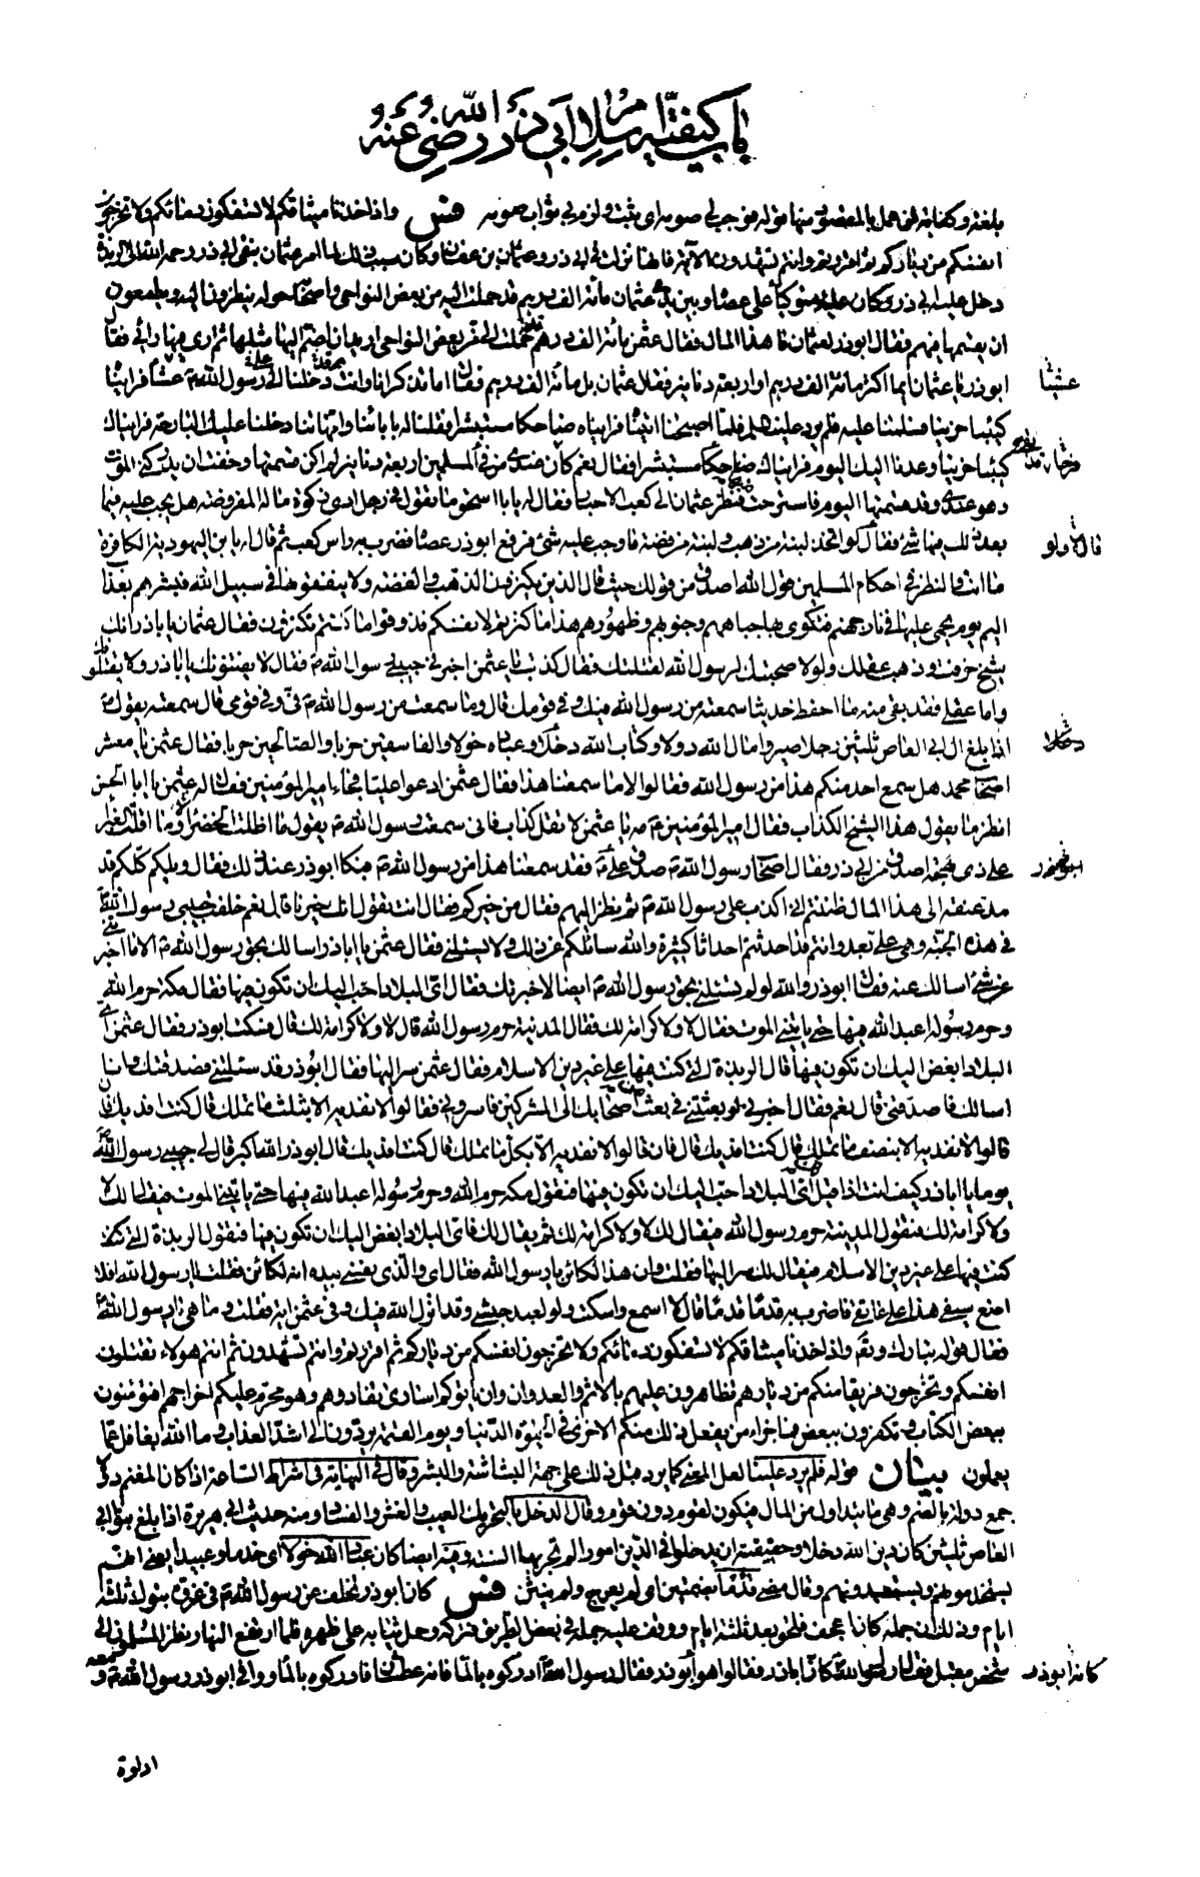 باب كيفية اسلام ابي ذر رضي الله عنه
بلغته وكفايته فمن عمل بالمعصية منها قوله فوجب لي صومه اي يثبت ولزم لي ثواب صومه فس واذ اخذنا ميثاقكم لا تسفكون دمائكم ولا تخرجون
انفسكم من دياركم ثم اقررتم وانتم تشهدون الآية فانها نزلت في ابي ذر وعثمان بن عفان وكان سبب ذلك لما امر عثمان بنفي ابي ذر رحمه الله الى الربذة
دخل عليه ابي ذر وكان عليلا متوكئا على عصاه وبين يدي عثمان مائة الف درهم قد حملت اليه من بعض النواحي واصحابه حوله ينظرون اليه ويطمعون
ان يقسمها فيهم فقال ابوذر لعثمان ما هذا المال فقال عثمن مائة الف درهم حملت الي من بعض النواحي اريد ان اضم اليها مثلها ثم ارى فيها رأيي فقال
ابوذر يا عثمان ايما اكثر مائة الف درهم او اربعة دنانير فقال عثمان بل مائة الف درهم فقال اما تذكر انا وانت دخلنا على رسول الله ص عشاء فرايناه
عشيا
كئيبا حزينا فسلمنا عليه فلم يرد علينا السلام فلما اصبحنا اتيناه فرايناه ضاحكا مستبشرا فقلنا له بابائنا وامهاتنا دخلنا عليك البارحة فرايناك
كئيبا حزينا وعدنا اليك اليوم فرايناك ضاحكا مستبشرا فقال نعم كان عندي من فيء المسلمين اربعة دنانير لم اكن قسمتها وخفت ان يدركني الموت
وهو عندي وقد قسمتها اليوم فاسترحت فنظر عثمان الى كعب الاحبار فقال له يا با اسحق ما تقول في رجل ادى زكوة ماله المفروضة هل يجب عليه فيما
بعد ذلك فيها شئ فقال لا ولو اتخذ لبنة من ذهب ولبنة من فضة ما وجب عليه شئ فرفع ابوذر عصاه فضرب به راس كعب ثم قال له يا بن اليهودية الكافرة
قال لا ولو
ما انت والنظر في احكام المسلمين قول الله اصدق من قولك حيث قال الذين يكنزون الذهب والفضة ولا ينفقونها في سبيل الله فبشرهم بعذاب
اليم يوم يحمى عليها في نار جهنم فتكوى بها جباههم وجنوبهم وظهورهم هذا ما كنزتم لانفسكم فذوقوا ما كنتم تكنزون فقال عثمان يا باذر انك
شيخ خرفت وذهب عقلك ولولا صحبتك لرسول الله لقتلتك فقال كذبت يا عثمن اخبرني حبيبي رسول الله ص فقال لا يفتنونك يا اباذر ولا يقتلونك
واما عقلي فقد بقي منه ما احفظ حديثا سمعته من رسول الله فيك وفي قومك قال وما سمعت من رسول الله ص في وفي قومي قال سمعته يقول ص
اذا بلغ ال ابي العاص ثلثين رجلا صيروا مال الله دولا وكتاب الله دغلا وعباده خولا والفاسقين حزبا والصالحين حربا فقال عثمن يا معشر
دغلا
اصحاب محمد هل سمع احد منكم هذا من رسول الله فقالوا لا ما سمعنا هذا فقال عثمن ادعوا عليا فجاء امير المؤمنين فقال له عثمن يا ابا الحسن
انظر ما يقول هذا الشيخ الكذاب فقال امير المؤمنين ع مه يا عثمن لا تقل كذاب فاني سمعت رسول الله ص يقول ما اظلت الخضراء وما اقلت الغبراء
على ذي لهجة اصدق من ابي ذر فقال اصحاب رسول الله ص صدق علي ع فقد سمعنا هذا من رسول الله ص فبكا ابوذر عند ذلك فقال ويلكم كلكم قد
مد عنقه الى هذا المال ظننتم اني اكذب على رسول الله ص ثم نظر اليهم فقال من خيركم فقال انت تقول انك خيرنا قال نعم خلفت حبيبي رسول الله ص
في هذه الجبة وهي علي بعد وانتم قد احدثتم احداثا كثيرة والله سائلكم عن ذلك ولا يسئلني فقال عثمن يا اباذر اسالك بحق رسول الله ص الا ما اخبرتني
عن شئ اسالك عنه فقال ابوذر والله لو لم تسئلني بحق رسول الله ص ايضا لاخبرتك فقال اي البلاد احب اليك ان تكون فيها فقال مكة حرم الله
وحرم رسوله اعبد الله فيها حتى ياتيني الموت فقال لا ولا كرامة لك فقال المدينة حرم رسول الله قال لا ولا كرامة لك قال فسكت ابوذر فقال عثمن اي
البلاد ابغض اليك ان تكون فيها قال الربذة التي كنت فيها على غير دين الاسلام فقال عثمن سر اليها فقال ابوذر قد سئلتني فصدقتك وانا
اسالك فاصدقني قال نعم فقال اخبرني لو بعثتني في بعث اصحابك الى المشركين فاسروني فقالوا لا نفديه الا بثلث ما تملك قال كنت افديك قال
قالوا لا نفديه الا بنصف ما تملك قال كنت افديك قال فان قالوا لا نفديه الا بكل ما تملك قال كنت افديك قال ابوذر الله اكبر قال لي حبيبي رسول الله ص
يوما يا اباذر كيف انت اذا قيل لك اي البلاد احب اليك ان تكون فيها فتقول مكة حرم الله وحرم رسوله اعبد الله فيها حتى ياتيني الموت فيقال لك لا
ولا كرامة لك فتقول المدينة حرم رسول الله فيقال لك لا ولا كرامة لك ثم يقال لك فاي البلاد ابغض اليك ان تكون فيها فتقول الربذة التي
كنت فيها على غير دين الاسلام فيقال لك سر اليها فقلت وان هذا لكائن يا رسول الله فقال اي والذي نفسي بيده انه لكائن فقلت يا رسول الله افلا
اضع سيفي هذا على عاتقي فاضرب به قدما قدما قال لا اسمع واسكت ولو لعبد حبشي وقد انزل الله فيك وفي عثمن اية فقلت وما هي يا رسول الله ص
فقال قوله تبارك وتع واذ اخذنا ميثاقكم لا تسفكون دمائكم ولا تخرجون انفسكم من دياركم ثم اقررتم وانتم تشهدون ثم انتم هؤلاء تقتلون
انفسكم وتخرجون فريقا منكم من ديارهم تظاهرون عليهم بالاثم والعدوان وان ياتوكم اسارى تفادوهم وهو محرم عليكم اخراجهم افتؤمنون
ببعض الكتاب وتكفرون ببعض فما جزاء من يفعل ذلك منكم الا خزي في الحيوة الدنيا ويوم القيمة يردون الى اشد العذاب وما الله بغافل عما
يعملون بيان قوله فلم يرد علينا لعل المعنى كما يرد قبل ذلك على جهة البشاشة والبشر وقال في النهاية في اشراط الساعة اذا كان المغنم دولا
جمع دولة بالضم وهي ما يتداول من المال فيكون لقوم دون قوم وقال الدخل بالتحريك العيب والغش والفساد ومنه حديث ابي هريرة اذا بلغ بنو ابي
العاص ثلثين كان دين الله دخلا وحقيقته ان يدخلوا في الدين امورا لم تجر بها السنة وفيه ايضا كان عباد الله خولا اي خدما وعبيدا يعني انهم
يستخدمونهم ويستعبدونهم وقال مضى قدما بضمتين اي لم يعرج ولم ينثن فس كان ابوذر تخلف عن رسول الله ص في غزوة تبوك ثلثة
ايام وذلك ان جمله كان اعجف فلحق بعد ثلثة ايام ووقف عليه جمله في بعض الطريق فتركه وحمل ثيابه على ظهره فلما ارتفع النهار نظر المسلمون الى
شخص مقبل فقال رسول الله ص كان اباذر فقالوا هو ابوذر فقال رسول الله ص ادركوه بالماء فانه عطشان فادركوه بالماء ووافى ابوذر رسول الله ص ومعه
كانه ابوذر
اداوة